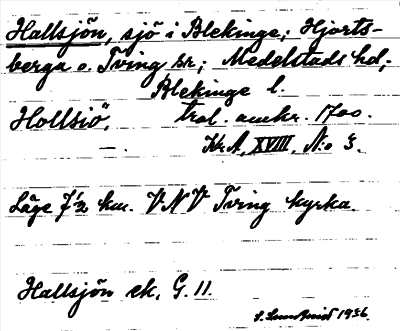 Hallsjön, sjö i Blekinge; Hjorts-
berga o. Tving sr; Medelstads hd;
Blekinge l.
Hollsiö, trol. omkr. 1700.
—. KrA, XVIII, No 3.
Läge 7 1/2 km. VNV Tving kyrka.
Hallsjön ek. G. 11.
1936.